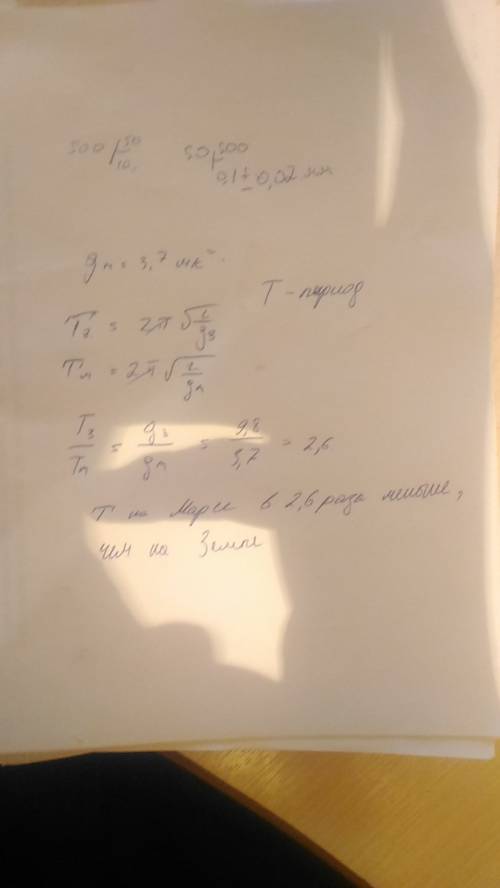 500 | 50
10
50 | 500
0,1 ± 0,02 мм
gм = 3,7
T - период
Tз = 2π√(l/gз)
Tм = 2π√(l/gм)
Tз/Tм = gз/gм = 9,8/3,7 = 2,6
T на Марсе в 2,6 раза меньше,
чем на Земле